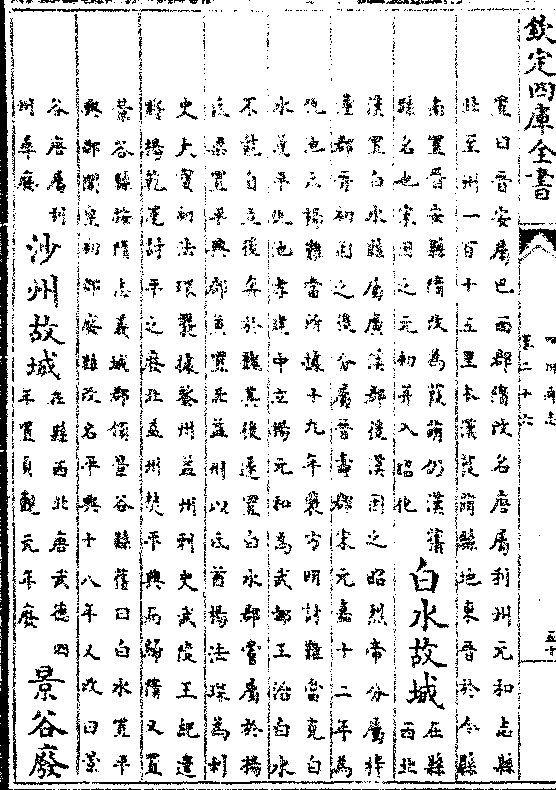 欽定四庫全書
四川通志
卷二十六
五十
寛曰晉安屬巴西郡隋改名唐屬利州元和志縣
北至州一百十五里本漢葭萌縣地東晉於今縣
南置晉安縣隋改為葭萌仍漢舊
縣名也宋因之元初并入昭化
白水故城
在縣
西北
漢置白水縣屬廣漢郡後漢因之昭烈帝分屬梓
潼郡晉初因之後分屬晉壽郡宋元嘉十二年為
仇池氐楊難當所據十九年裴方明討難當克白
水遂平仇池孝建中立楊元和為武都王治白水
不能自立後奔於魏其後遂置白水郡嘗屬於楊
氐梁置平興郡兼置北益州以氐酋楊法琛為刺
史大寳初法琛襲據黎州益州刺史武陵王紀遣
將楊乾運討平之廢北益州焚平興而歸隋又置
景谷縣按隋志義城郡領景谷縣舊曰白水置平
興郡開皇初郡廢縣改名平興十八年又改曰景
谷唐屬利
州尋廢
沙州故城
在縣西北唐武德四
年置貞觀元年廢
景谷廢